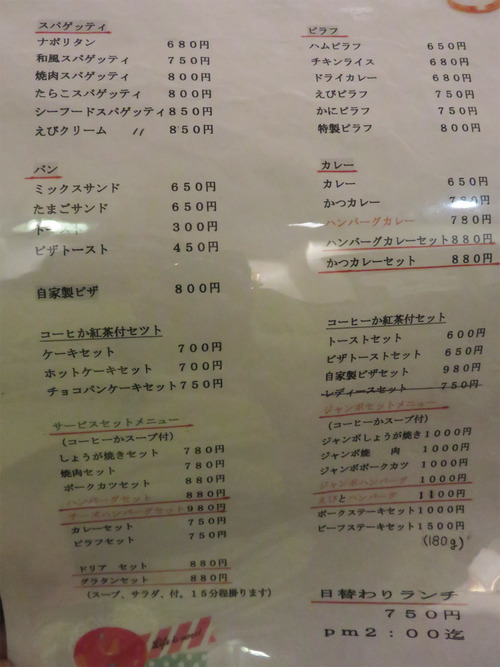 スパゲッティ
ナポリタン 680円
和風スパゲッティ 750円
焼肉スパゲッティ 800円
たらこスパゲッティ 800円
シーフードスパゲッティ 850円
えびクリーム 〃 850円
パン
ミックスサンド 650円
たまごサンド 650円
トースト 300円
ピザトースト 450円
自家製ピザ 800円
コーヒか紅茶付セツト
ケーキセット 700円
ホットケーキセット 700円
チョコパンケーキセット 750円
サービスセットメニュー
(コーヒーかスープ付)
しょうが焼きセット 780円
焼肉セット 780円
ポークカツセット 880円
ハンバーグセット 880円
チーズハンバーグセット 980円
カレーセット 750円
ピラフセット 750円
ドリア セット 880円
グラタンセット 880円
(スープ、サラダ、付。15分程掛ります)
ピラフ
ハムピラフ 650円
チキンライス 680円
ドライカレー 680円
えびピラフ 750円
かにピラフ 750円
特製ピラフ 800円
カレー
カレー 650円
かつカレー 780円
ハンバーグカレー 780円
ハンバーグカレーセット 880円
かつカレーセット 880円
コーヒーか紅茶付セット
トーストセット 600円
ピザトーストセット 650円
自家製ピザセット 980円
レディースセット 750円
ジャンボセットメニュー
(コーヒーかスープ付)
ジャンボしょうが焼き 1000円
ジャンボ焼 肉 1000円
ジャンボポークカツ 1000円
ジャンボハンバーグ 1000円
えびとハンバーグ 1100円
ポークステーキセット 1000円
ビーフステーキセット 1500円
(180g)
日替わりランチ
750円
pm2:00迄